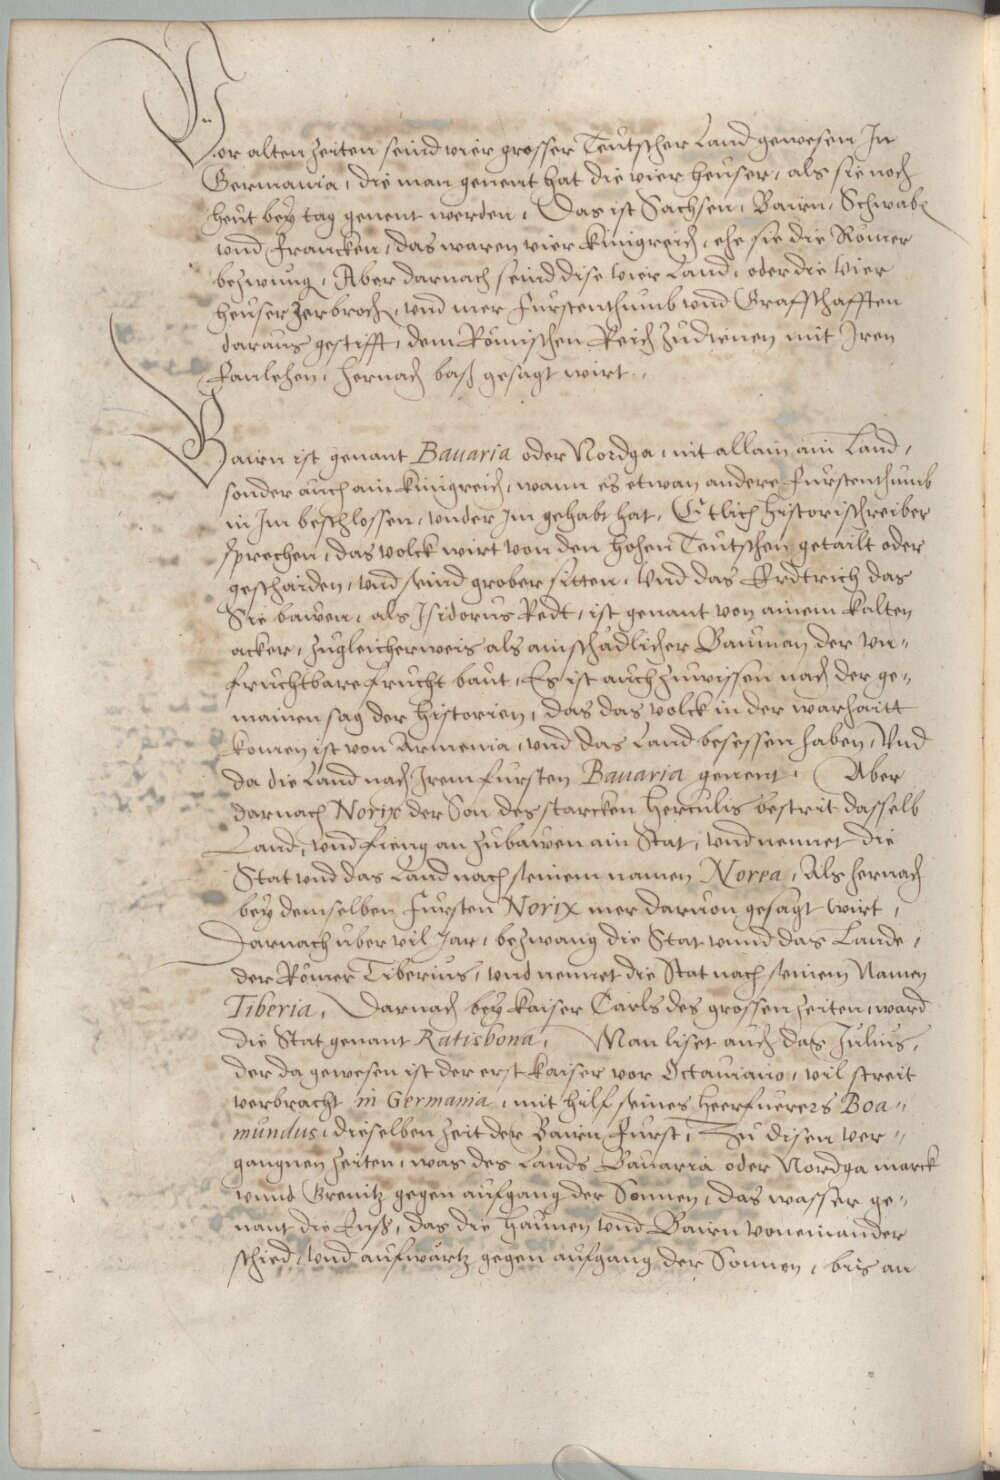 Vor alten Zeiten seind vier grosser Teutscher Land gewesen In
Germania, die man genent hat die vier heuser, als sie noch
heut bey tag genent werden, Das ist Sachsen, Bairn, Schwaben
vnd Francken, das waren vier Künigreich, ehe sie die Römer
bezwung, Aber darnach seind dise vier Land, oder die vier
heuser zerbroch, vnd mer Fürstenthumb vnd Graffschafften
daraus gestifft, dem Römischen Reich zu dienen mit Iren
hernach baß gesagt wirt.
Bairn ist genant Bauaria oder Nordga, nit allain ain Land,
sonder auch ain Künigreich, wann es etwan andere Fürstenthumb
in Im beschlossen, vnder Im gehabt hat, Etlich historischreiber
sprechen, das volck wirt von den hohen Teutschen getailt oder
geschaiden, vnd seind grober sitten, Vnd das Erdtrich das
Sie bawen, als Isidorus Redt, ist genant von ainem kalten
acker, zugleicherweis als ain schädlicher Bauman der vn„
fruchtbare frucht baut, Es ist auch zuwissen nach der ge„
mainen sag der historien, das das volck in der warhaitt
komen ist von Armenia, vnd das Land besessen haben, Vnd
da die Land nach Irem fürsten Bauaria genent. Aber
darnach Norix der Son des starcken Herculis bestrit dasselb
Land, vnd fieng an zubawen ain Stat, vnd nennet die
Stat vnd das Land nach seinem namen Norea, Als hernach
bey demselben Fürsten Norix mer daruon gesagt wirt,
Darnach über vil Jar, bezwang die Stat vnnd das Lande,
der Römer Tiberius, vnd nennet die Stat nach seinem Namen
Tiberia, Darnach bey kaiser Carls des grossen zeiten, ward
die Stat genant Ratisbona, Man liset auch das Julius,
der da gewesen ist der erst kaiser vor Octauiano, vil streit
verbracht in Germania, mit hilf seines heerfuerers Boa„
mundus, dieselben zeit der Bairn Fürst, Zu disen ver„
gangnen zeiten, was des Lands Bauaria oder Nordga marck
vnnd Grenitz gegen aufgang der Sonnen, das wasser ge„
nant die Enß, das die haunen vnd Bairn voneinander
schied, Vnd aufwärtz gegen aufgang der Sonnen, bis an